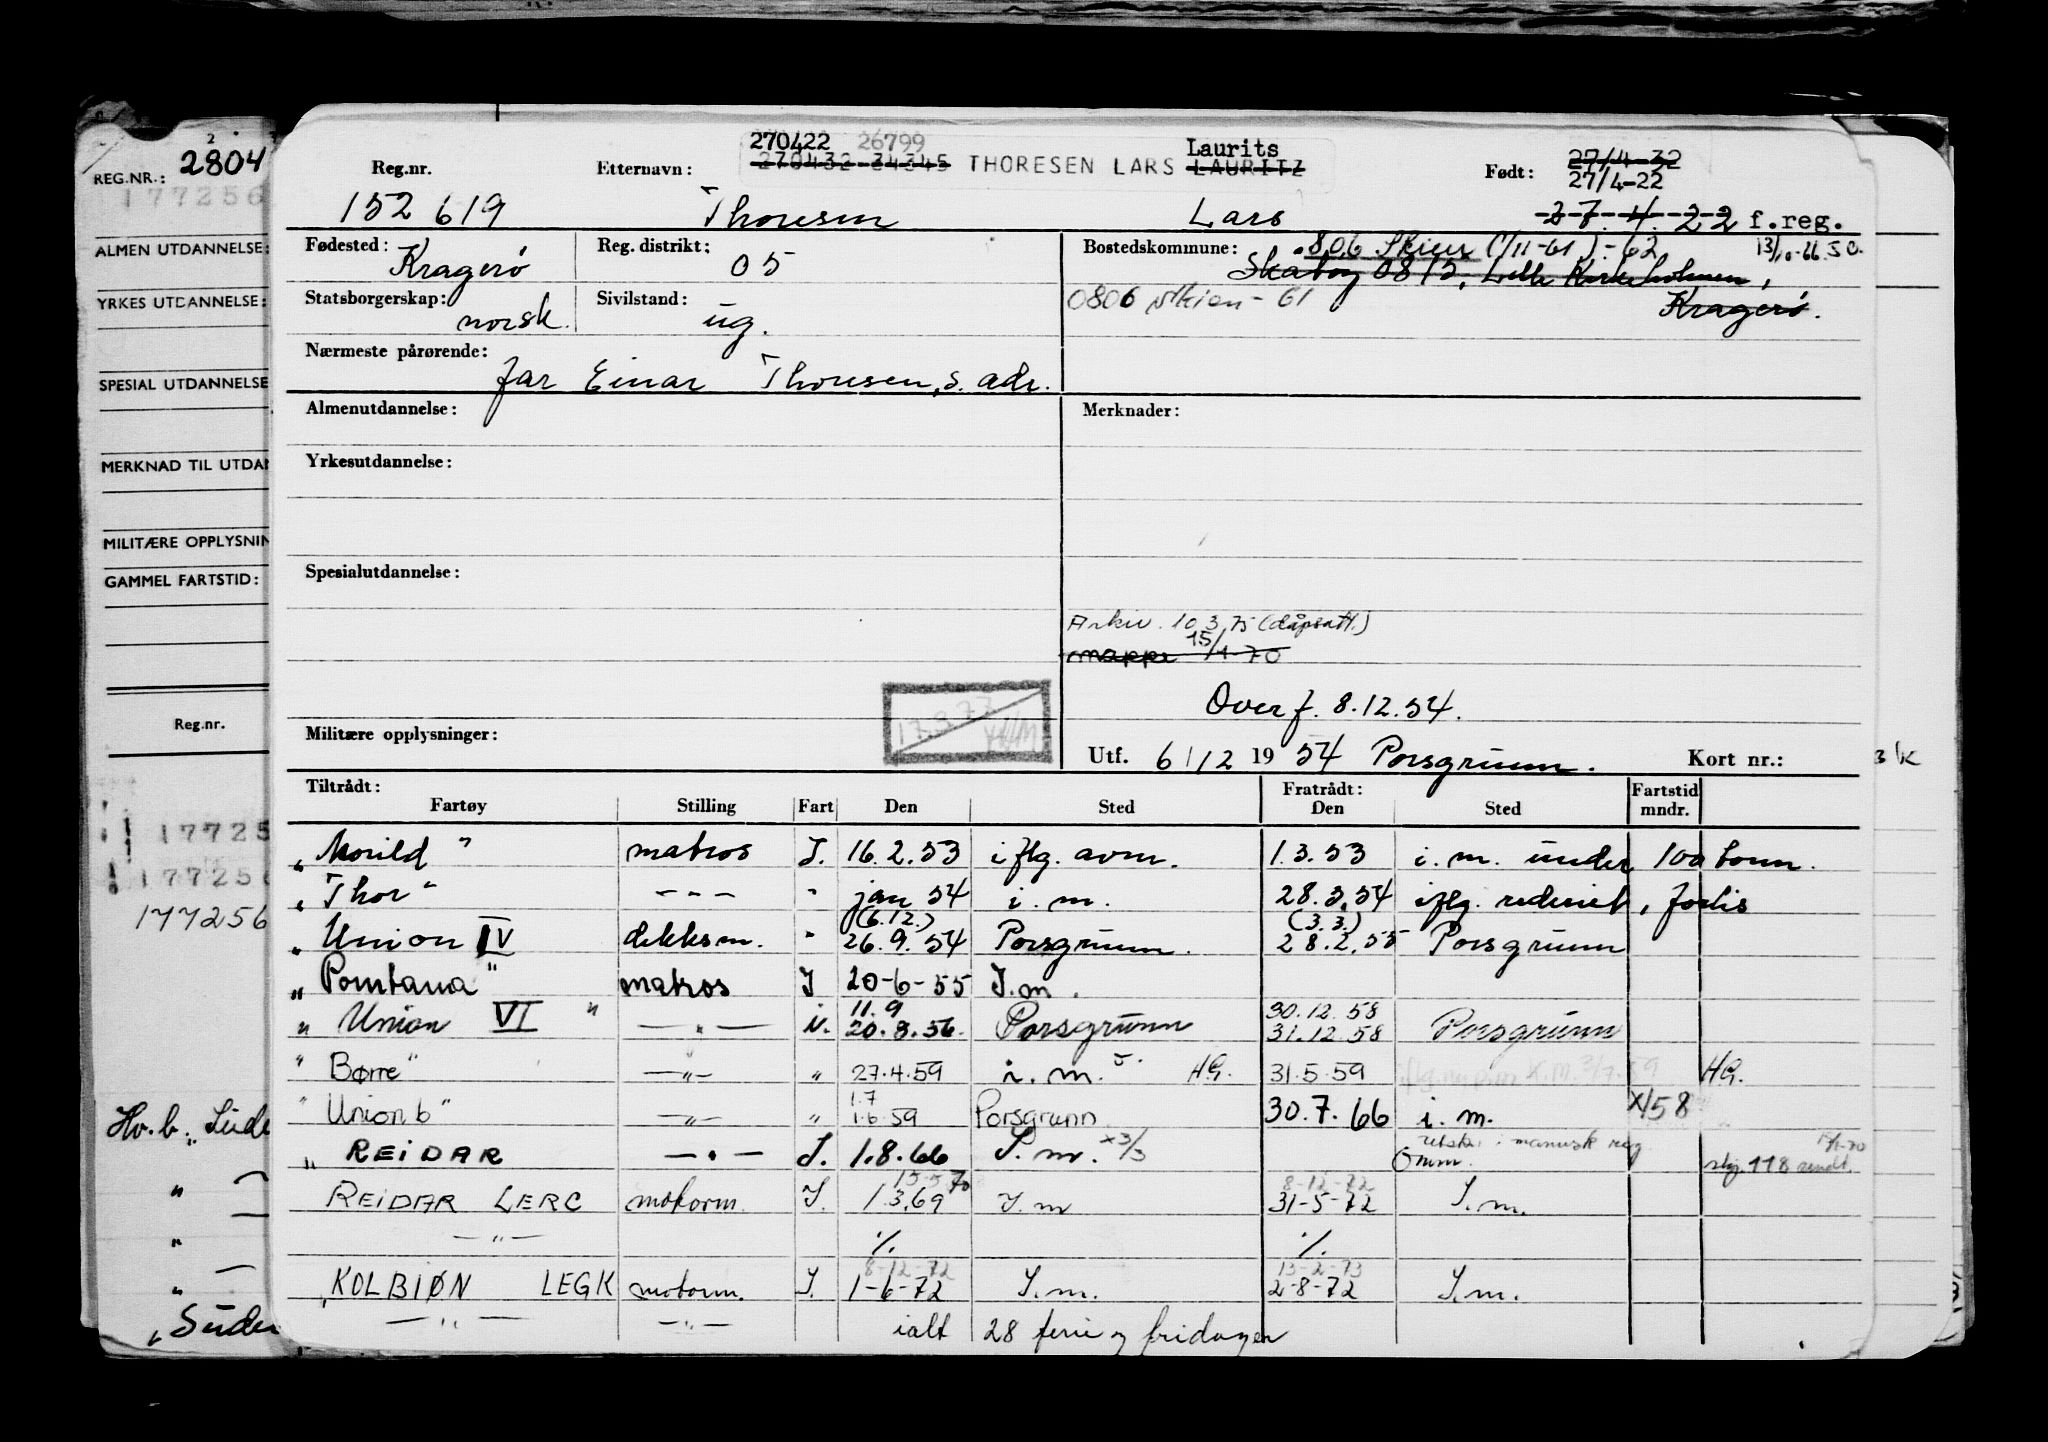 270422 26799 Laurits
270432 34345 THORESEN LARS LAURITZ
Reg.nr. Etternavn: Født: 27/4-32
27/4-22
152 619 Thoresen Lars 27.4.22 f.reg.
13/10-66 S.O.
Fødested: Kragerø Reg. distrikt: 05 Bostedskommune: 806 Skien (1/11-61)-62
Skåtøy 0815, Lille Kirkeholmen,
Kragerø.
0806 Skien-61
Statsborgerskap: norsk. Sivilstand: ug.
Nærmeste pårørende: far Einar Thoresen, s. adr.
Almenutdannelse: Merknader:
Yrkesutdannelse:
Spesialutdannelse:
Arkiv. 10.3.75 (dåpsatt.)
mappe 15/1-70
Overf. 8.12.54.
17.9.73
Militære opplysninger: Utf. 6/12 1954 Porsgrunn. Kort nr.:
Tiltrådt: Fratrådt: Fartstid
Fartøy Stilling Fart Den Sted Den Sted mndr.
„Morild" matros I. 16.2.53 iflg. avm. 1.3.53 i.m. under 100 tonn.
„Thor" - - - " jan 54 i.m. 28.3.54 iflg. rederiet, forlis
(6.12.) (3.3.)
„Union IV dekksm. " 26.9.54 Porsgrunn. 28.2.55 Porsgrunn
„Pomtana" matros I 20-6-55 I.m.
11.9 30.12.58
" Union VI " — " — i. 20.8.56. Porsgrunn 31.12.58 Porsgrunn
" Børre" — " — " 27.4.59 i.m. HG. 31.5.59 HG.
1.7
" Union 6" — " — " 1.6.59 Porsgrunn 30.7.66 i.m. x/58
„ REIDAR — " — I. 1.8.66 I.m. x3/3
15/1-70
15-5-70 8-12-72
REIDAR LERC motorm. I. 1.3.69 I.m 31-5-72 I.m.
— " — %. %.
8-12-72 13-2-73
„KOLBIØN LEGK motorm. I. 1-6-72 I.m. 2-8-72 I.m.
— " — — " — ialt 28 ferie og fridager
2
REG.NR.: 2804
177256
ALMEN UTDANNELSE:
YRKES UTDANNELSE:
SPESIAL UTDANNELSE
MERKNAD TIL UTDAN
MILITÆRE OPPLYSNIN
GAMMEL FARTSTID:
Reg.nr.
17725
177256
177256
Hv.b. „Süde
„Süder
3 K